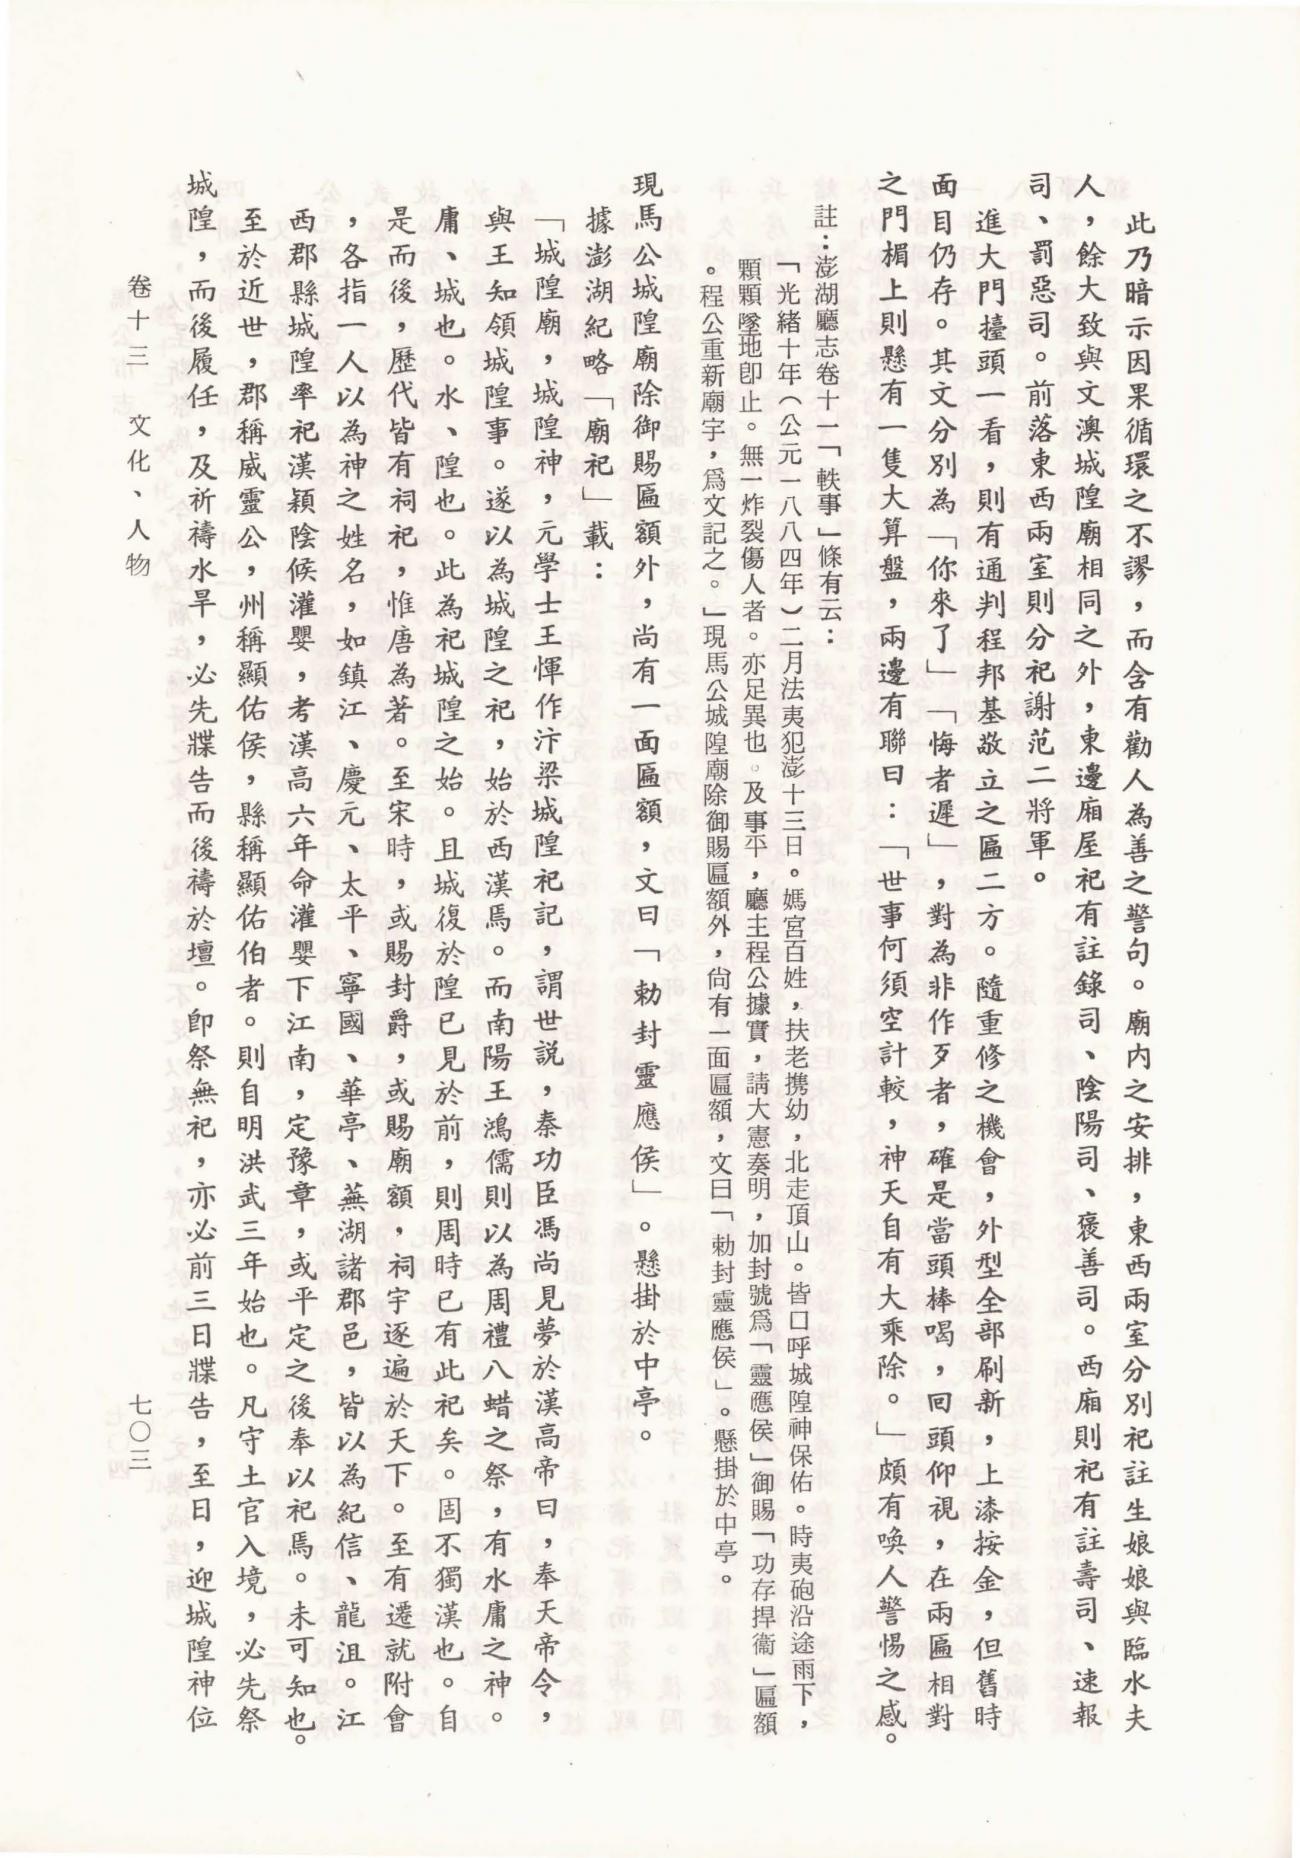 此乃暗示因果循環之不謬，而含有勸人為善之警句。廟內之安排，東西兩室分別祀註生娘娘與臨水夫
人，餘大致與文澳城隍廟相同之外，東邊廂屋祀有註錄司、陰陽司、褒善司。西廂則祀有註壽司、速報
司、罰惡司。前落東西兩室則分祀謝范二將軍。
進大門擡頭一看，則有通判程邦基敬立之匾二方。隨重修之機會，外型全部刷新，上漆按金，但舊時
面目仍存。其文分別為「你來了」「悔者遲」，對為非作歹者，確是當頭棒喝，回頭仰視，在兩匾相對
之門楣上則懸有一隻大算盤，兩邊有聯曰：「世事何須空計較，神天自有大乘除。」頗有喚人警惕之感。
註：澎湖廳志卷十一「軼事」條有云：
「光緒十年（公元一八八四年）二月法夷犯澎十三日。媽宮百姓，扶老携幼，北走頂山。皆口呼城隍神保佑。時夷砲沿途雨下，
顆顆墜地卽止。無一炸裂傷人者。亦足異也。及事平，廳主程公據實，請大憲奏明，加封號爲「靈應侯」御賜「功存捍衞」匾額
。程公重新廟宇，爲文記之。」現馬公城隍廟除御賜匾額外，尙有一面匾額，文曰「勅封靈應侯」。懸掛於中亭。
現馬公城隍廟除御賜匾額外，尚有一面匾額，文曰「勅封靈應侯」。懸掛於中亭。
據澎湖紀略「廟祀」載：
「城隍廟，城隍神，元學士王惲作汴梁城隍祀記，謂世說，秦功臣馮尚見夢於漢高帝曰，奉天帝令，
與王知領城隍事。遂以為城隍之祀，始於西漢焉。而南陽王鴻儒則以為周禮八蜡之祭，有水庸之神。
庸、城也。水、隍也。此為祀城隍之始。且城復於隍已見於前，則周時已有此祀矣。固不獨漢也。自
是而後，歷代皆有祠祀，惟唐為著。至宋時，或賜封爵，或賜廟額，祠宇逐遍於天下。至有遷就附會
，各指一人以為神之姓名，如鎮江、慶元、太平、寧國、華亭、蕪湖諸郡邑，皆以為紀信、龍沮。江
西郡縣城隍率祀漢穎陰侯灌嬰，考漢高六年命灌嬰下江南，定豫章，或平定之後奉以祀焉。未可知也。
至於近世，郡稱威靈公，州稱顯佑侯，縣稱顯佑伯者。則自明洪武三年始也。凡守土官入境，必先祭
城隍，而後履任，及祈禱水旱，必先牒告而後禱於壇。卽祭無祀，亦必前三日牒告，至日，迎城隍神位
卷十三　文化、人物
七〇三